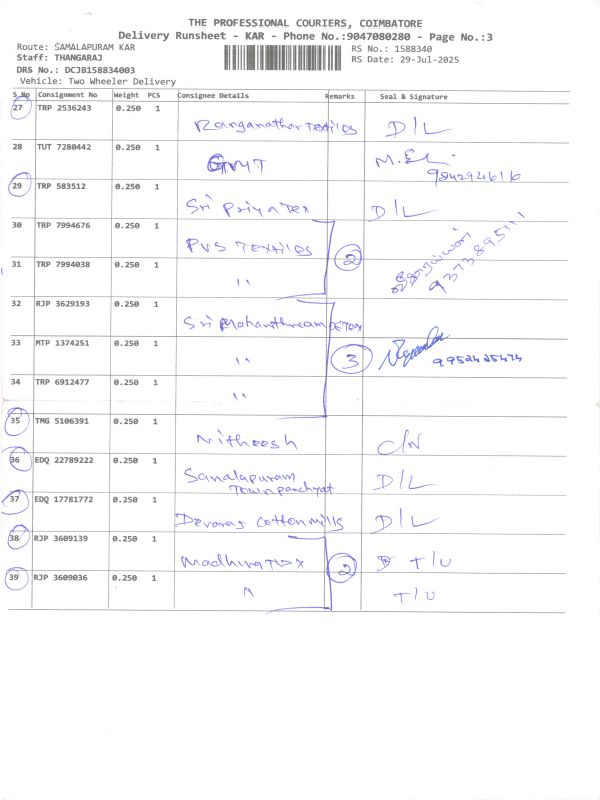 THE PROFESSIONAL COURIERS, COIMBATORE
Delivery Runsheet - KAR - Phone No.:9047080280 - Page No.:3
Route: SAMALAPURAM KAR RS No.: 1588340
Staff: THANGARAJ RS Date: 29-Jul-2025
DRS No.: DCJB158834003
Vehicle: Two Wheeler Delivery
S_No Consignment No Weight PCS Consignee Details Remarks Seal & Signature
27 TRP 2536243 0.250 1
Ranganathar Textiles D/L
28 TUT 7280442 0.250 1
9842924616
29 TRP 583512 0.250 1
Sri Priya Tex D/L
30 TRP 7994676 0.250 1
PVS Textiles 2
31 TRP 7994038 0.250 1
"
9373895711
32 RJP 3629193 0.250 1
33 MTP 1374251 0.250 1
" 3
9952425474
34 TRP 6912477 0.250 1
"
35 TMG 5106391 0.250 1
Nitheesh C/N
36 EDQ 22789222 0.250 1
Samalapuram D/L
Town panchyat
37 EDQ 17781772 0.250 1
Devaraj Cotton mills D/L
38 RJP 3609139 0.250 1
Madhira Tex 2 T/U
39 RJP 3609036 0.250 1
" T/U